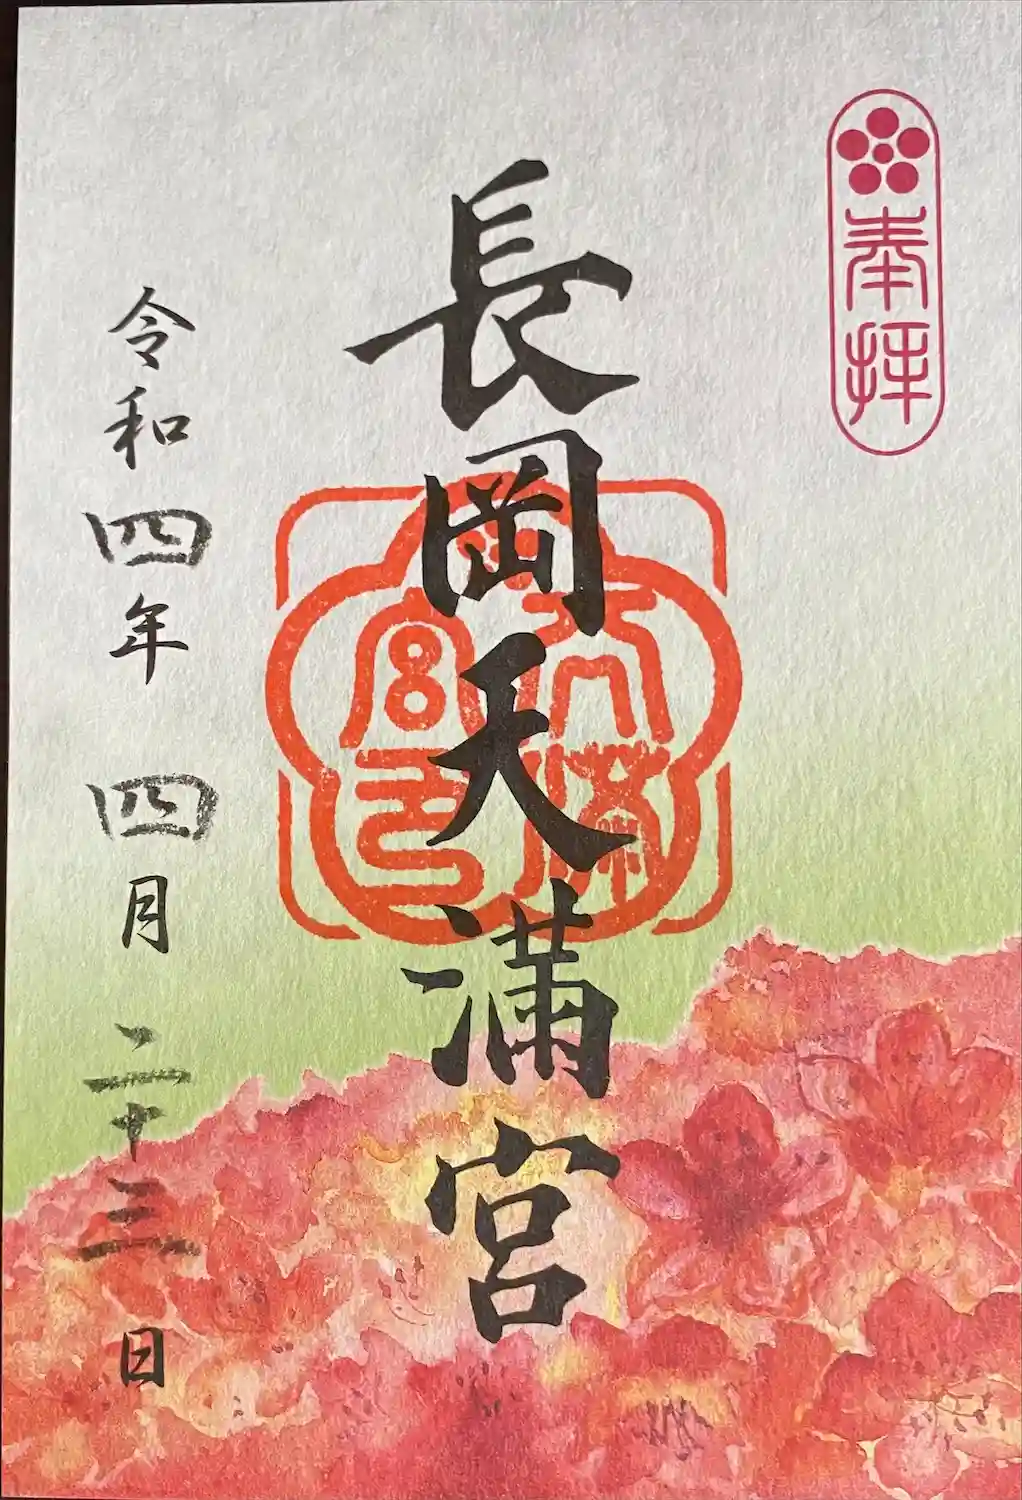 奉拝
長岡天満宮
天満宮印
令和四年四月二十三日